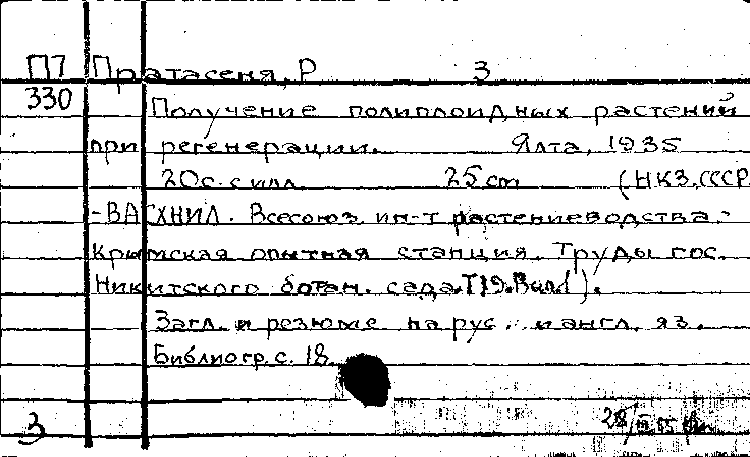 П7 Пратасеня, Р 3
330 Получение полиплоидных растений
при регенерации. Ялта, 1935
20с. с илл. 25 cm (НКЗ.СССР
-ВАСХНИЛ. Всесоюз. ин-т растениеводства.-
Крымская опытная станция. Труды гос.
Никитского ботан. сада. Т19.Вып1).
Загл. и резюме на рус. и англ. яз.
Библиогр. с. 18
3